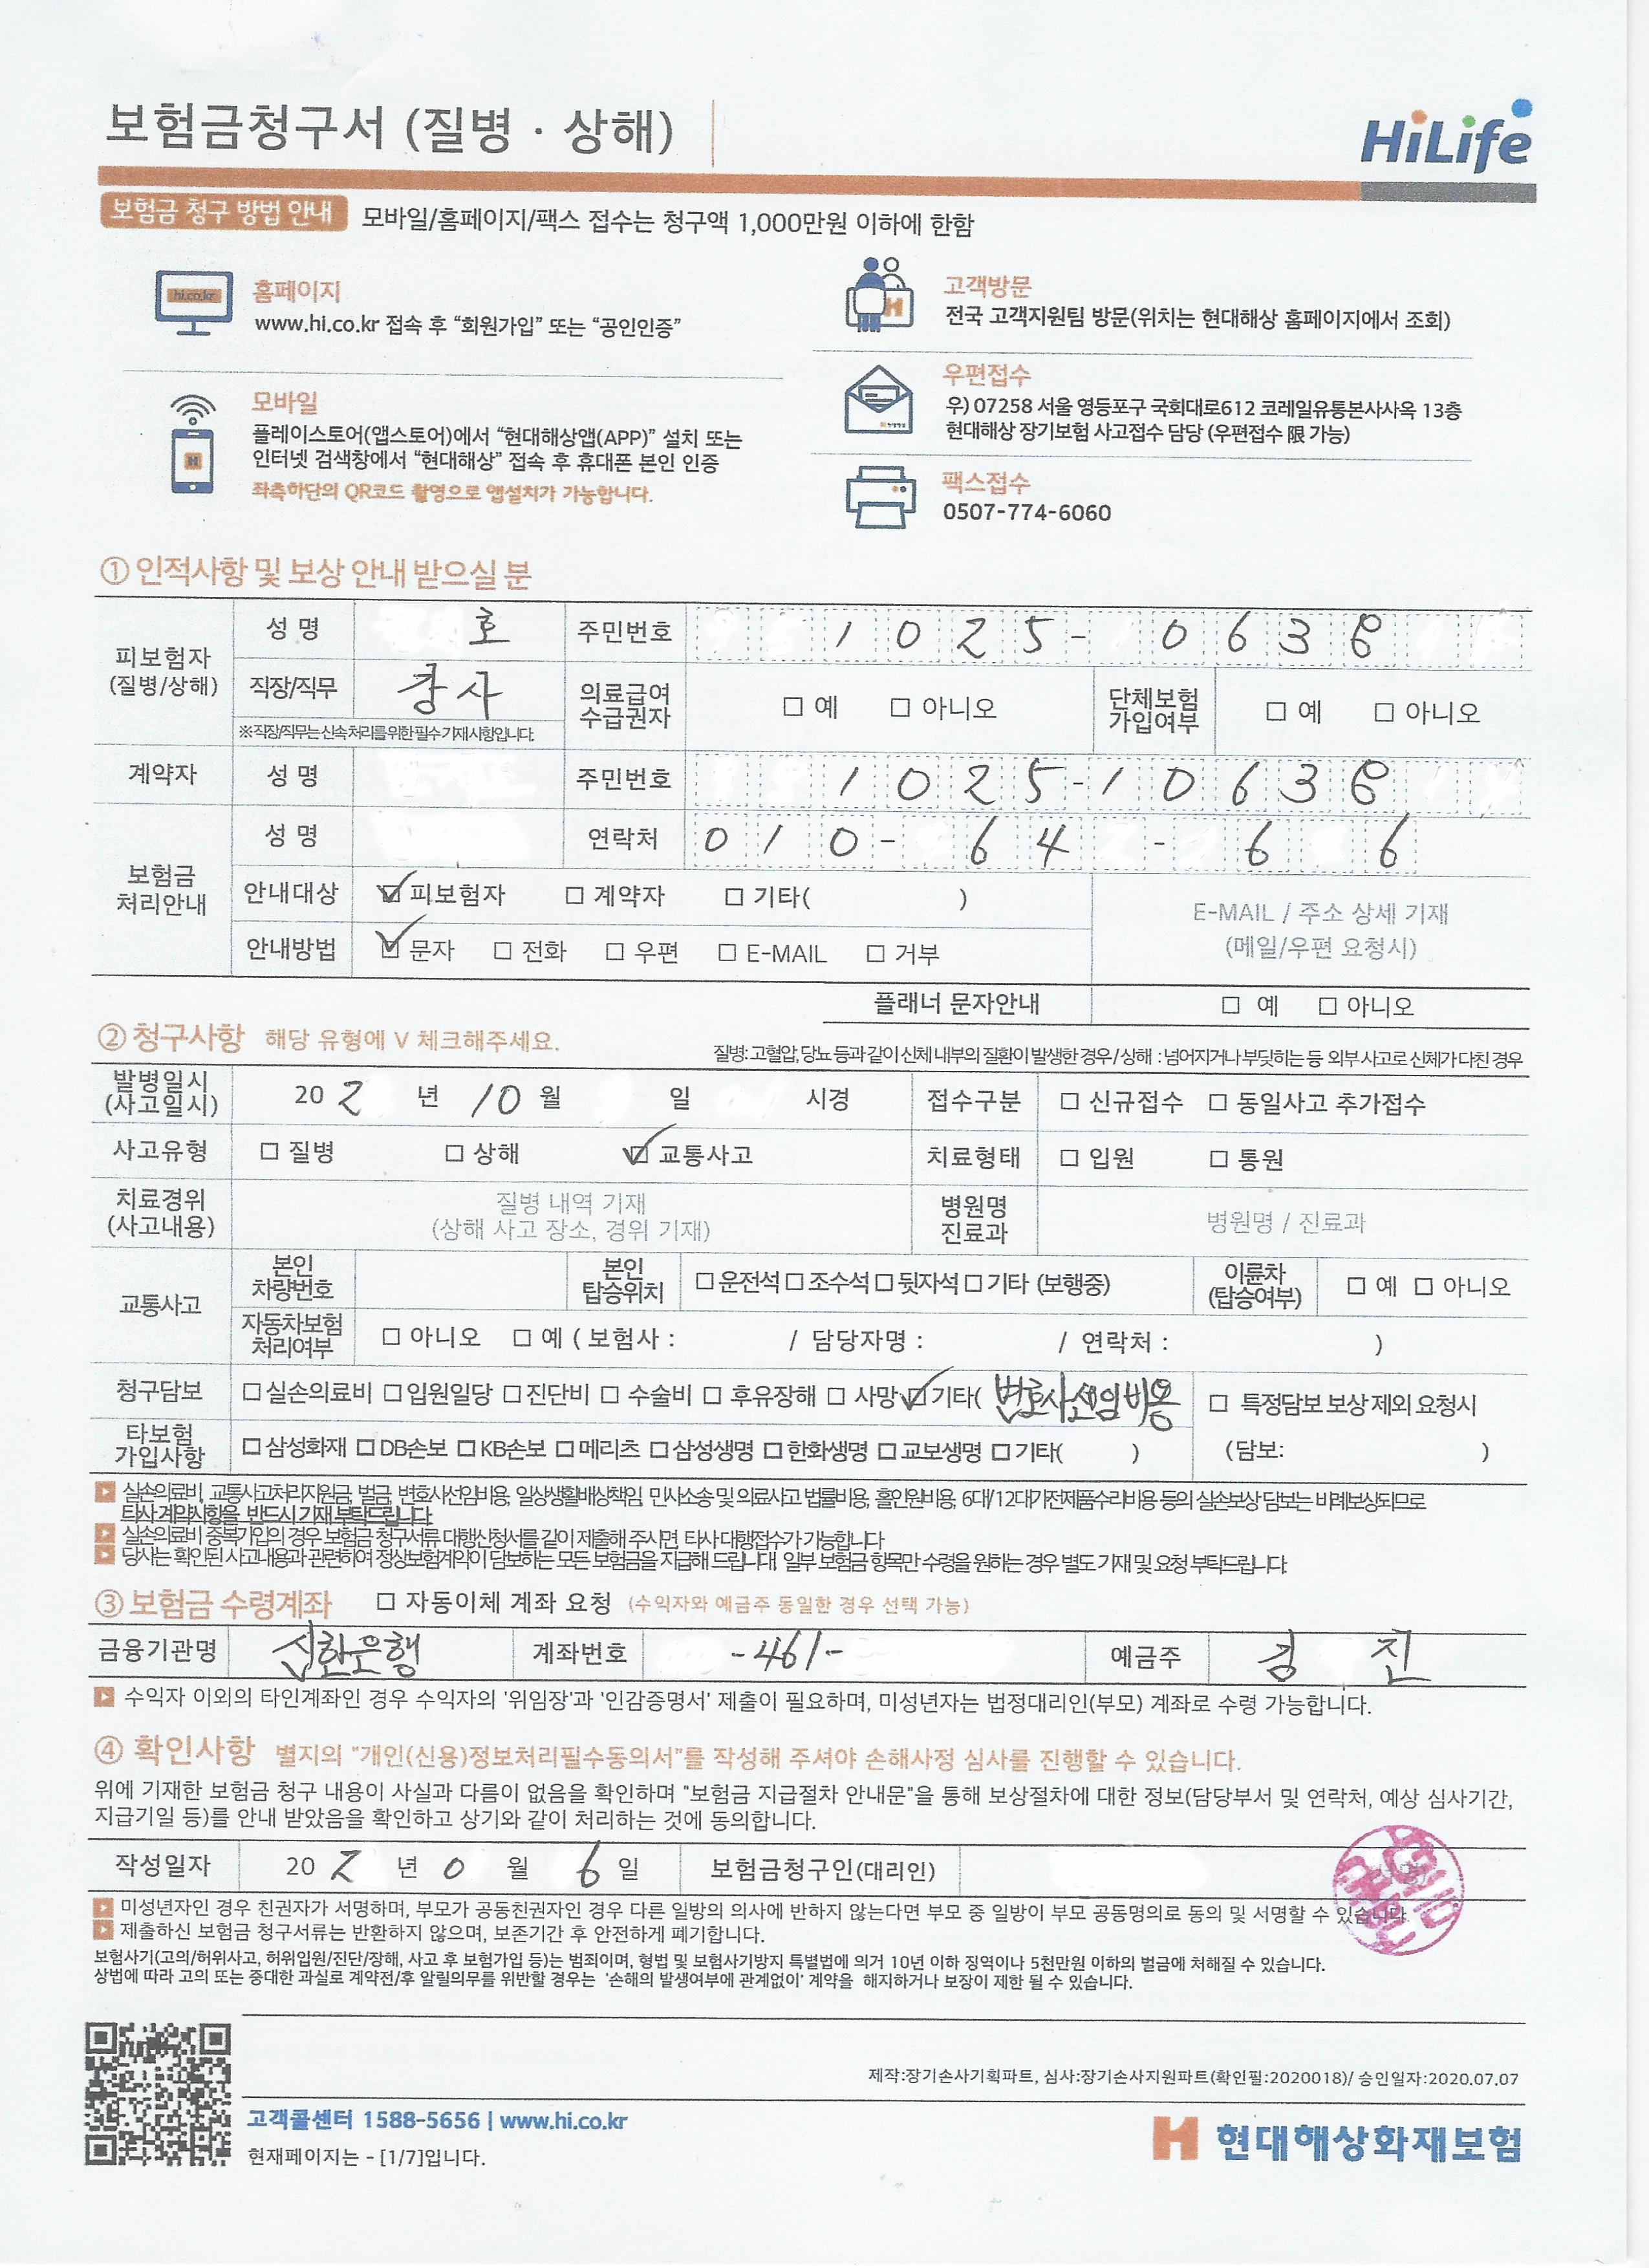 보험금청구서 (질병 · 상해)
HiLife
보험금 청구 방법 안내 모바일/홈페이지/팩스 접수는 청구액 1,000만원 이하에 한함
hi.co.kr
홈페이지
www.hi.co.kr 접속 후 “회원가입” 또는 “공인인증”
모바일
플레이스토어(앱스토어)에서 “현대해상앱(APP)” 설치 또는
인터넷 검색창에서 “현대해상” 접속 후 휴대폰 본인 인증
좌측하단의 QR코드 촬영으로 앱설치가 가능합니다.
고객방문
전국 고객지원팀 방문(위치는 현대해상 홈페이지에서 조회)
우편접수
우) 07258 서울 영등포구 국회대로612 코레일유통본사사옥 13층
현대해상 장기보험 사고접수 담당 (우편접수 限 가능)
팩스접수
0507-774-6060
① 인적사항 및 보상 안내 받으실 분
피보험자 (질병/상해) 성 명 호 주민번호 1 0 2 5 - 0 6 3 8
직장/직무 강사 의료급여 수급권자 □ 예 □ 아니오 단체보험 가입여부 □ 예 □ 아니오
※직장/직무는 신속 처리를 위한 필수 기재사항입니다.
계약자 성 명 주민번호 1 0 2 5 - 1 0 6 3 8
보험금 처리안내 성 명 연락처 0 1 0 - 6 4 - 6 6
안내대상 ☑ 피보험자 □ 계약자 □ 기타( )
안내방법 ☑ 문자 □ 전화 □ 우편 □ E-MAIL □ 거부
E-MAIL / 주소 상세 기재
(메일/우편 요청시)
플래너 문자안내 □ 예 □ 아니오
② 청구사항 해당 유형에 V 체크해주세요.
질병: 고혈압, 당뇨 등과 같이 신체 내부의 질환이 발생한 경우 / 상해 : 넘어지거나 부딪히는 등 외부 사고로 신체가 다친 경우
발병일시 (사고일시) 20 2 년 10 월 일 시경 접수구분 □ 신규접수 □ 동일사고 추가접수
사고유형 □ 질병 □ 상해 ☑ 교통사고 치료형태 □ 입원 □ 통원
치료경위 (사고내용) 질병 내역 기재 (상해 사고 장소, 경위 기재) 병원명 진료과 병원명 / 진료과
교통사고 본인 차량번호 본인 탑승위치 □ 운전석 □ 조수석 □ 뒷자석 □ 기타 (보행중) 이륜차 (탑승여부) □ 예 □ 아니오
자동차보험 처리여부 □ 아니오 □ 예 ( 보험사 : / 담당자명 : / 연락처 : )
청구담보 □ 실손의료비 □ 입원일당 □ 진단비 □ 수술비 □ 후유장해 □ 사망 ☑ 기타( 변호사선임비용 □ 특정담보 보상 제외 요청시
타보험 가입사항 □ 삼성화재 □ DB손보 □ KB손보 □ 메리츠 □ 삼성생명 □ 한화생명 □ 교보생명 □ 기타( ) (담보: )
실손의료비, 교통사고처리지원금, 벌금, 변호사선임비용, 일상생활배상책임, 민사소송 및 의료사고 법률비용, 홀인원비용, 6대/12대가전제품수리비용 등의 실손보상 담보는 비례보상되므로
타사 계약사항을 반드시 기재 부탁드립니다.
실손의료비 중복가입의 경우 보험금 청구서류 대행신청서를 같이 제출해 주시면, 타사 대행접수가 가능합니다.
당사는 확인된 사고내용과 관련하여 정상보험계약이 담보하는 모든 보험금을 지급해 드립니다. 일부 보험금 항목만 수령을 원하는 경우 별도 기재 및 요청 부탁드립니다.
③ 보험금 수령계좌 □ 자동이체 계좌 요청 (수익자와 예금주 동일한 경우 선택 가능)
금융기관명 신한은행 계좌번호 -461- 예금주 김 진
수익자 이외의 타인계좌인 경우 수익자의 '위임장'과 '인감증명서' 제출이 필요하며, 미성년자는 법정대리인(부모) 계좌로 수령 가능합니다.
④ 확인사항 별지의 "개인(신용)정보처리필수동의서"를 작성해 주셔야 손해사정 심사를 진행할 수 있습니다.
위에 기재한 보험금 청구 내용이 사실과 다름이 없음을 확인하며 "보험금 지급절차 안내문"을 통해 보상절차에 대한 정보(담당부서 및 연락처, 예상 심사기간,
지급기일 등)를 안내 받았음을 확인하고 상기와 같이 처리하는 것에 동의합니다.
작성일자 20 2 년 0 월 6 일 보험금청구인(대리인)
미성년자인 경우 친권자가 서명하며, 부모가 공동친권자인 경우 다른 일방의 의사에 반하지 않는다면 부모 중 일방이 부모 공동명의로 동의 및 서명할 수 있습니다.
제출하신 보험금 청구서류는 반환하지 않으며, 보존기간 후 안전하게 폐기합니다.
보험사기(고의/허위사고, 허위입원/진단/장해, 사고 후 보험가입 등)는 범죄이며, 형법 및 보험사기방지 특별법에 의거 10년 이하 징역이나 5천만원 이하의 벌금에 처해질 수 있습니다.
상법에 따라 고의 또는 중대한 과실로 계약전/후 알릴의무를 위반할 경우는 '손해의 발생여부에 관계없이' 계약을 해지하거나 보장이 제한 될 수 있습니다.
제작:장기손사기획파트, 심사:장기손사지원파트(확인필:2020018)/ 승인일자:2020.07.07
고객콜센터 1588-5656 | www.hi.co.kr
현재페이지는 - [1/7]입니다.
현대해상화재보험